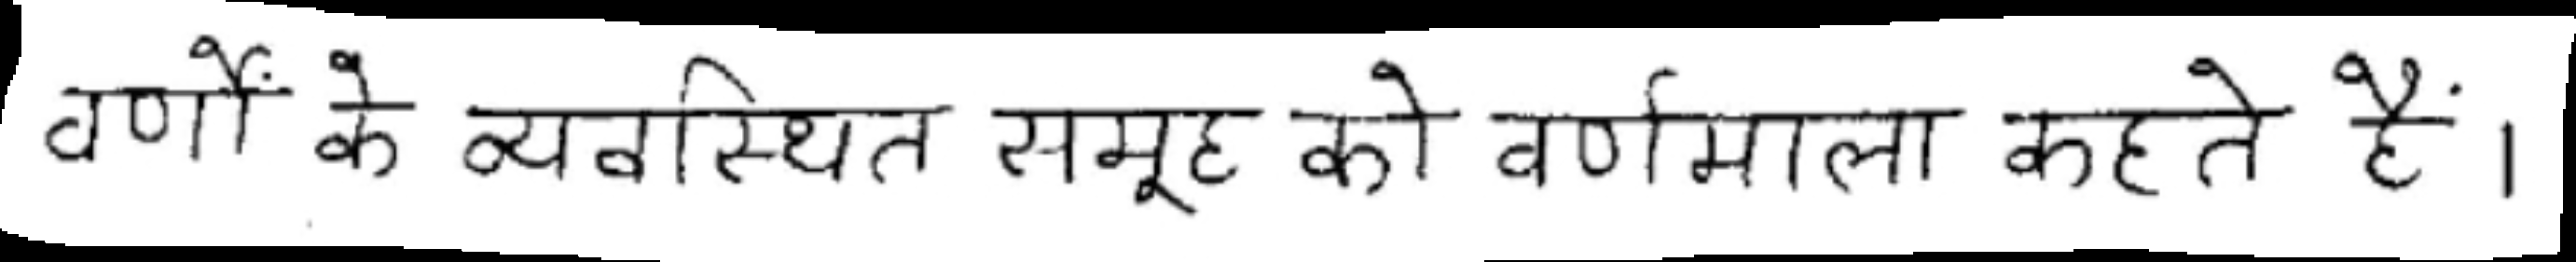 वर्णों के व्यवस्थित समूह को वर्णमाला कहते हैं।